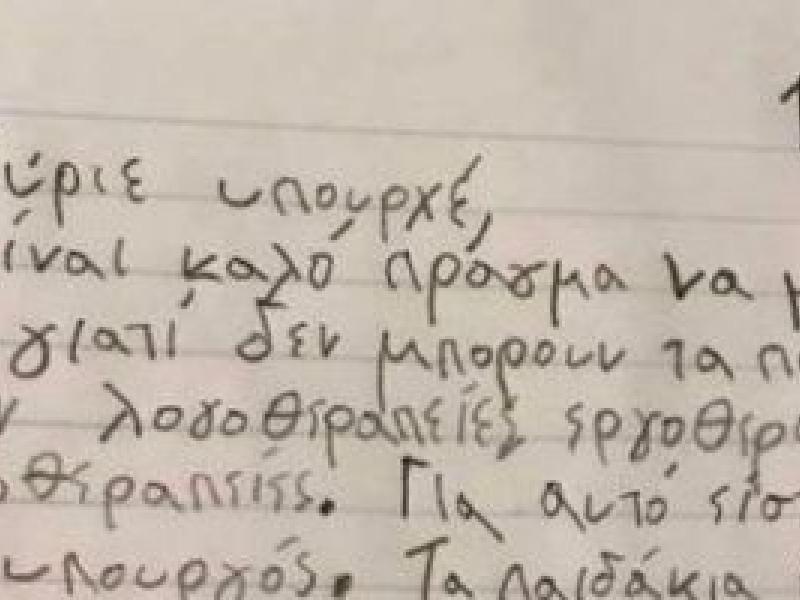 ύριε υπουρχέ,
ίναι καλό πράγμα να μ
γιατί δεν μπορουν τα π
ν λογοθεραπείες εργοθερ
οθεραπείες. Για αυτό είσ
υπουργός. Τα παιδάκια